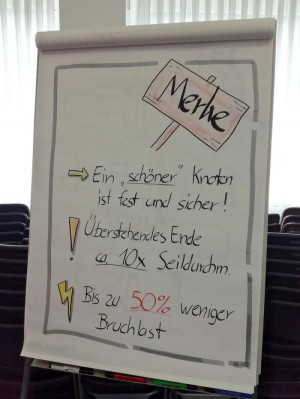 Merke
Ein „schöner" Knoten
ist fest und sicher!
Überstehendes Ende
ca. 10x Seildurchm.
Bis zu 50% weniger
Bruchlast